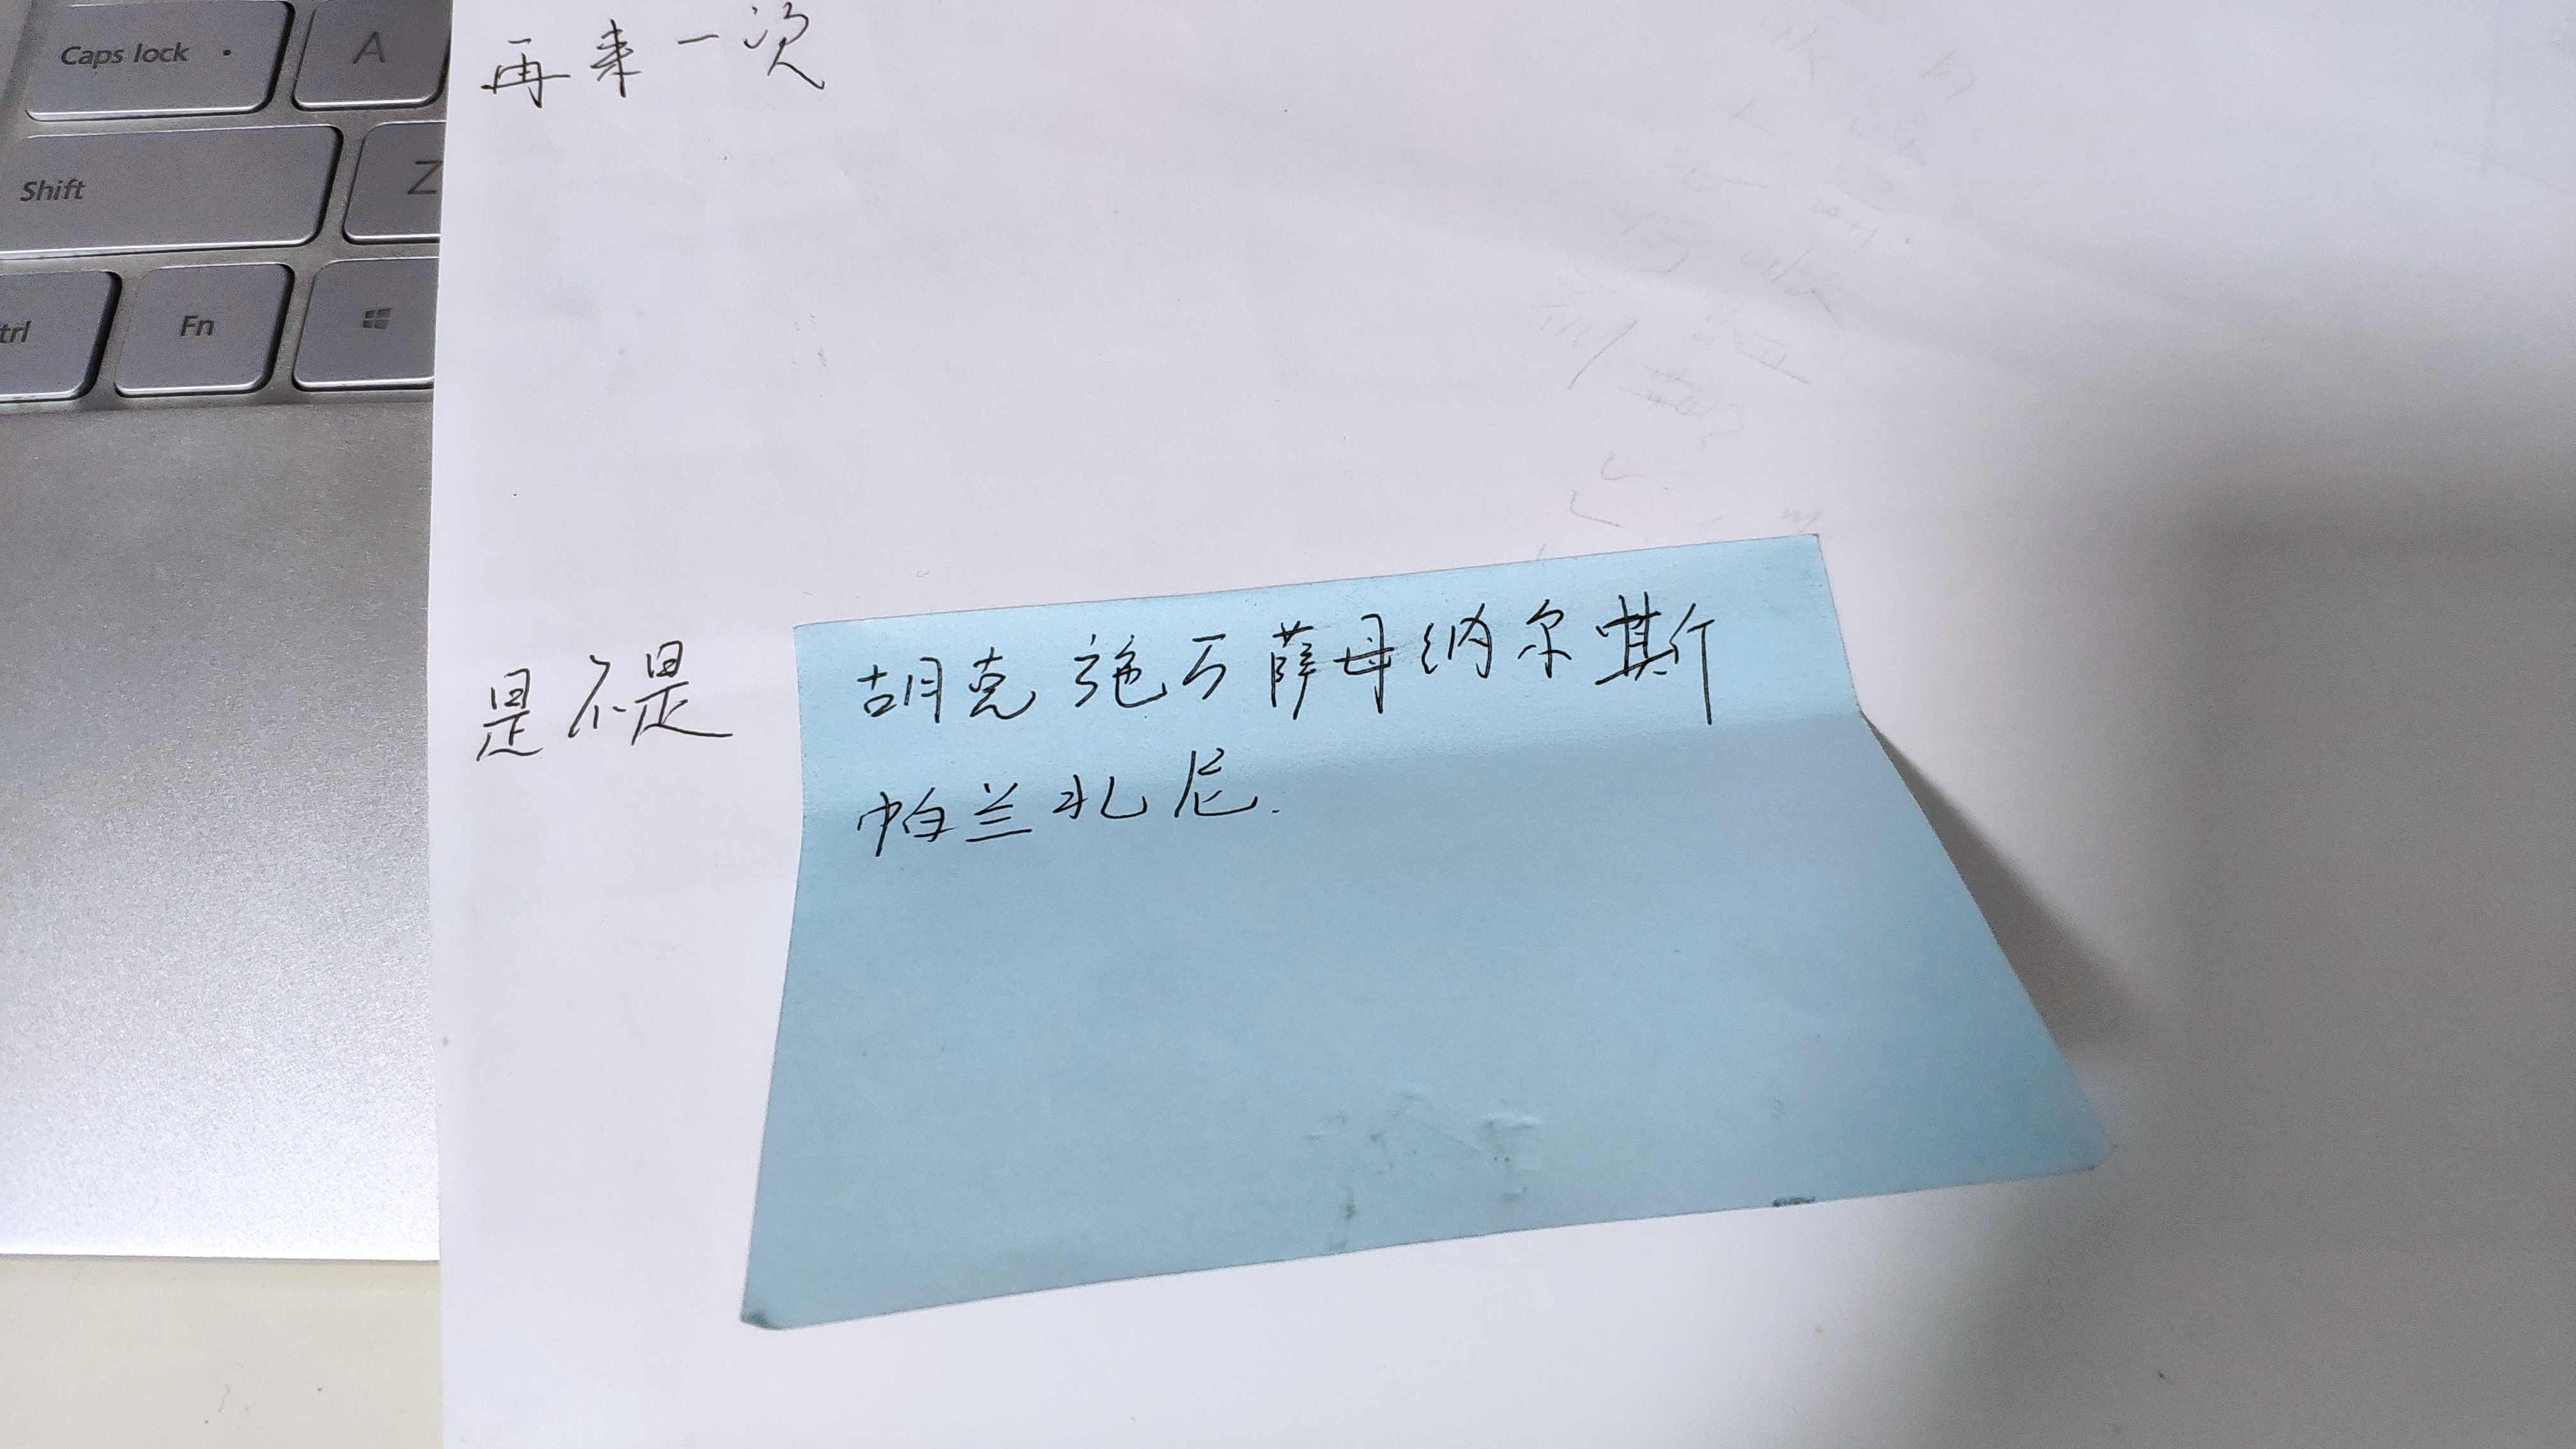 Caps lock
A
Shift
Z
trl
Fn
再来一次
是不是
胡克施万萨母纳尔斯
帕兰扎尼.